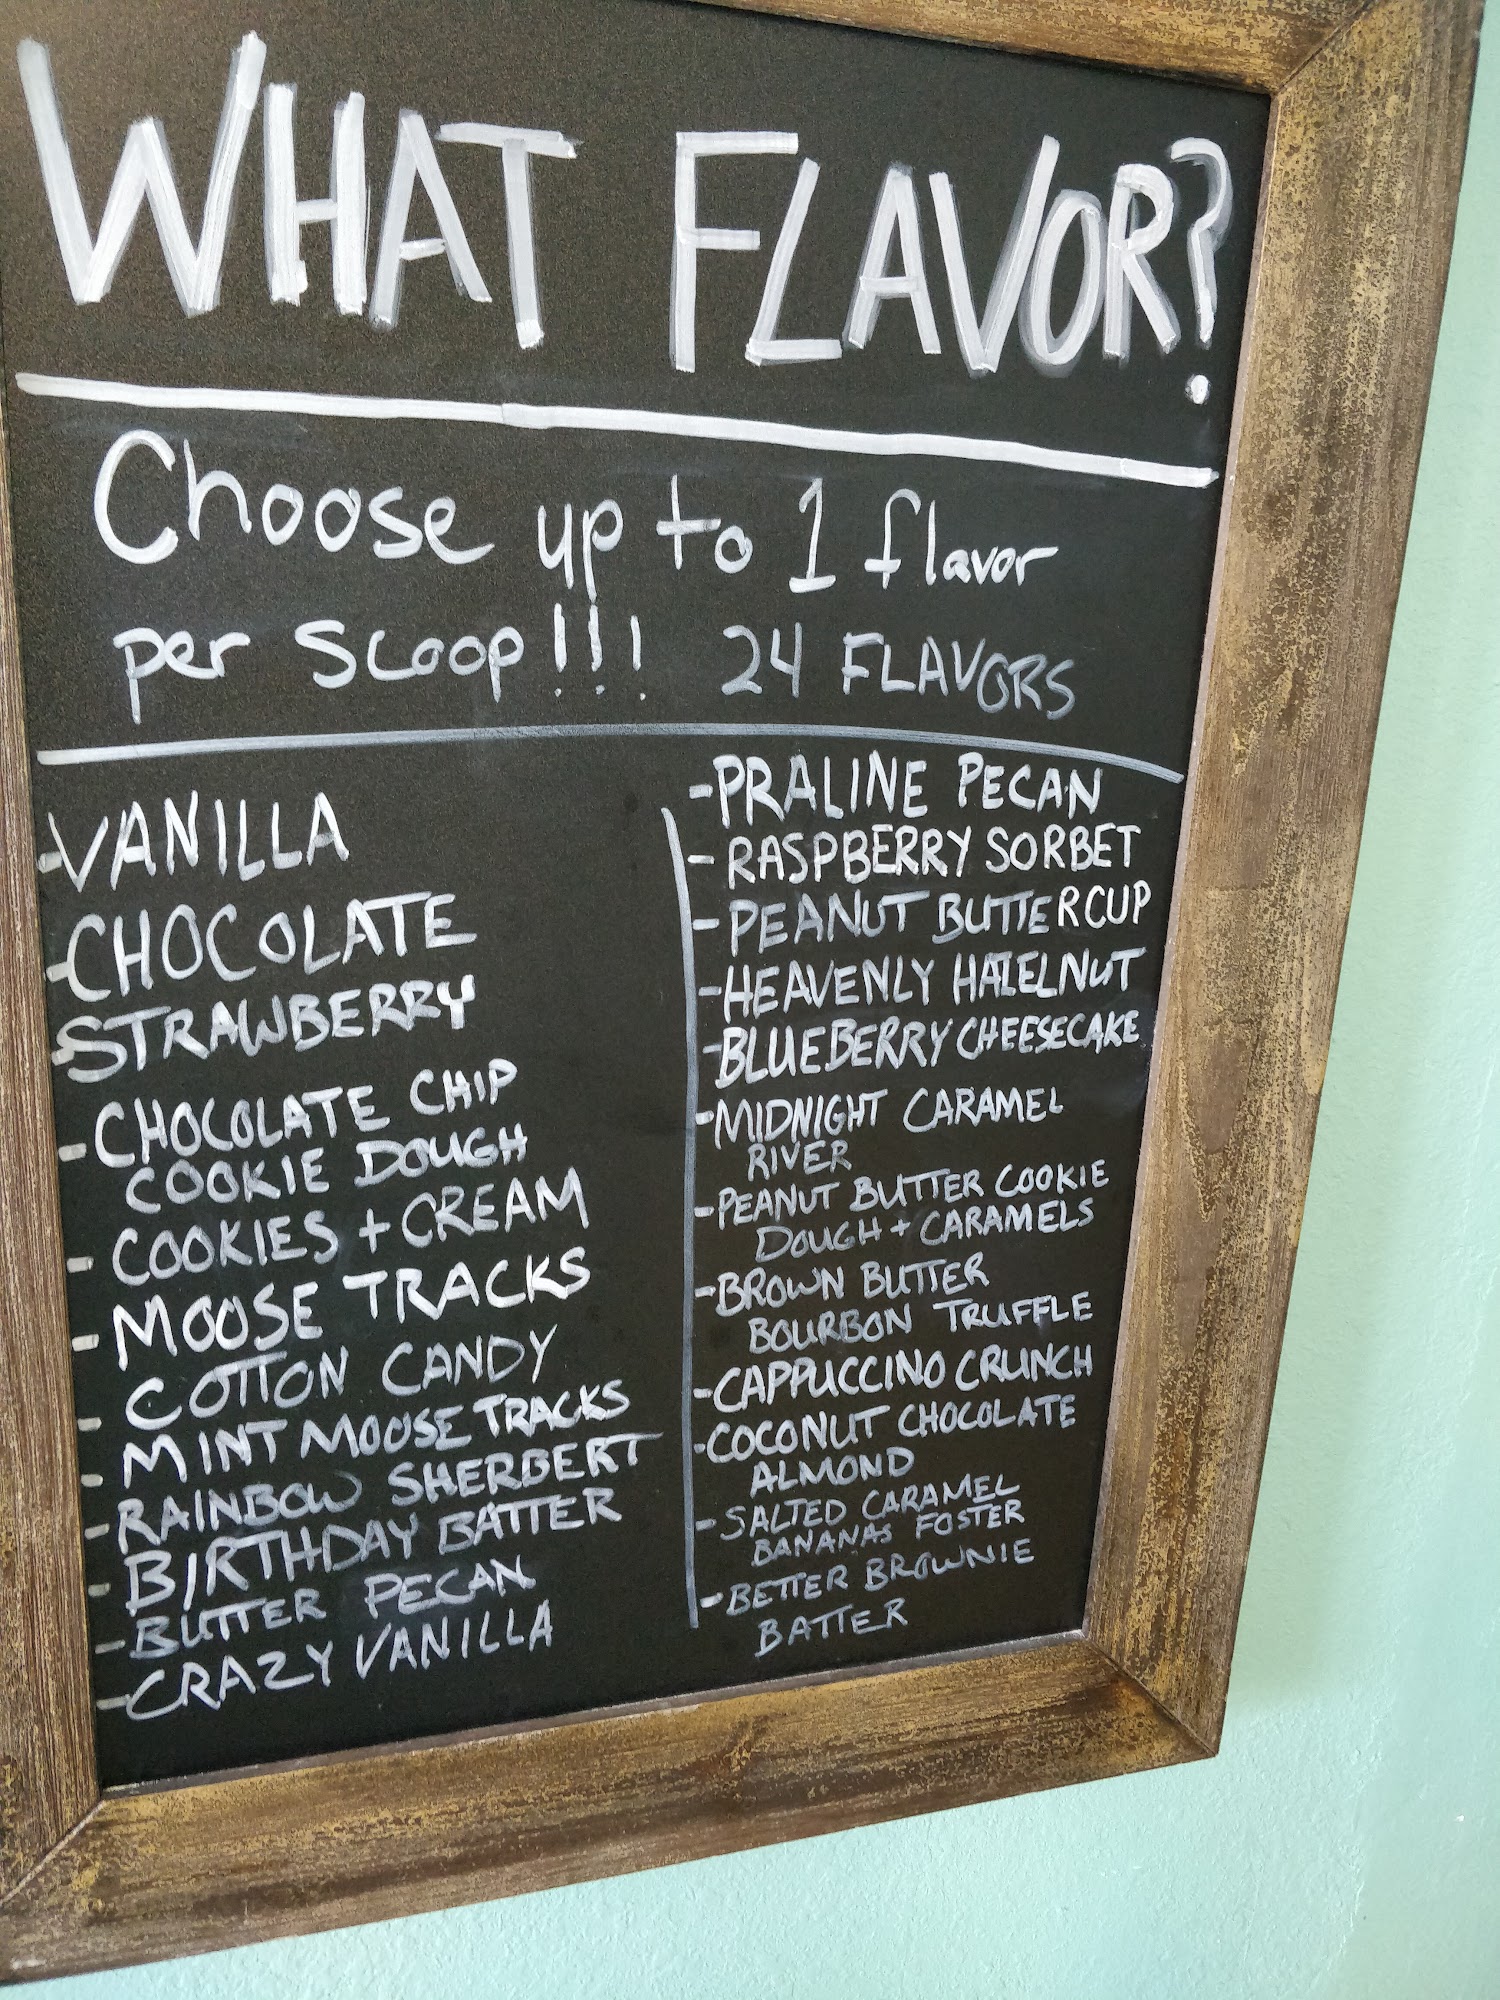 WHAT FLAVOR?
Choose up to 1 flavor
per scoop!!! 24 FLAVORS
-VANILLA
-CHOCOLATE
-STRAWBERRY
-CHOCOLATE CHIP
COOKIE DOUGH
-COOKIES + CREAM
-MOOSE TRACKS
-COTTON CANDY
-MINT MOOSE TRACKS
-RAINBOW SHERBERT
-BIRTHDAY BATTER
-BUTTER PECAN
-CRAZY VANILLA
-PRALINE PECAN
-RASPBERRY SORBET
-PEANUT BUTTERCUP
-HEAVENLY HAZELNUT
-BLUEBERRY CHEESECAKE
-MIDNIGHT CARAMEL
RIVER
-PEANUT BUTTER COOKIE
DOUGH + CARAMELS
-BROWN BUTTER
BOURBON TRUFFLE
-CAPPUCCINO CRUNCH
-COCONUT CHOCOLATE
ALMOND
-SALTED CARAMEL
BANANAS FOSTER
-BETTER BROWNIE
BATTER